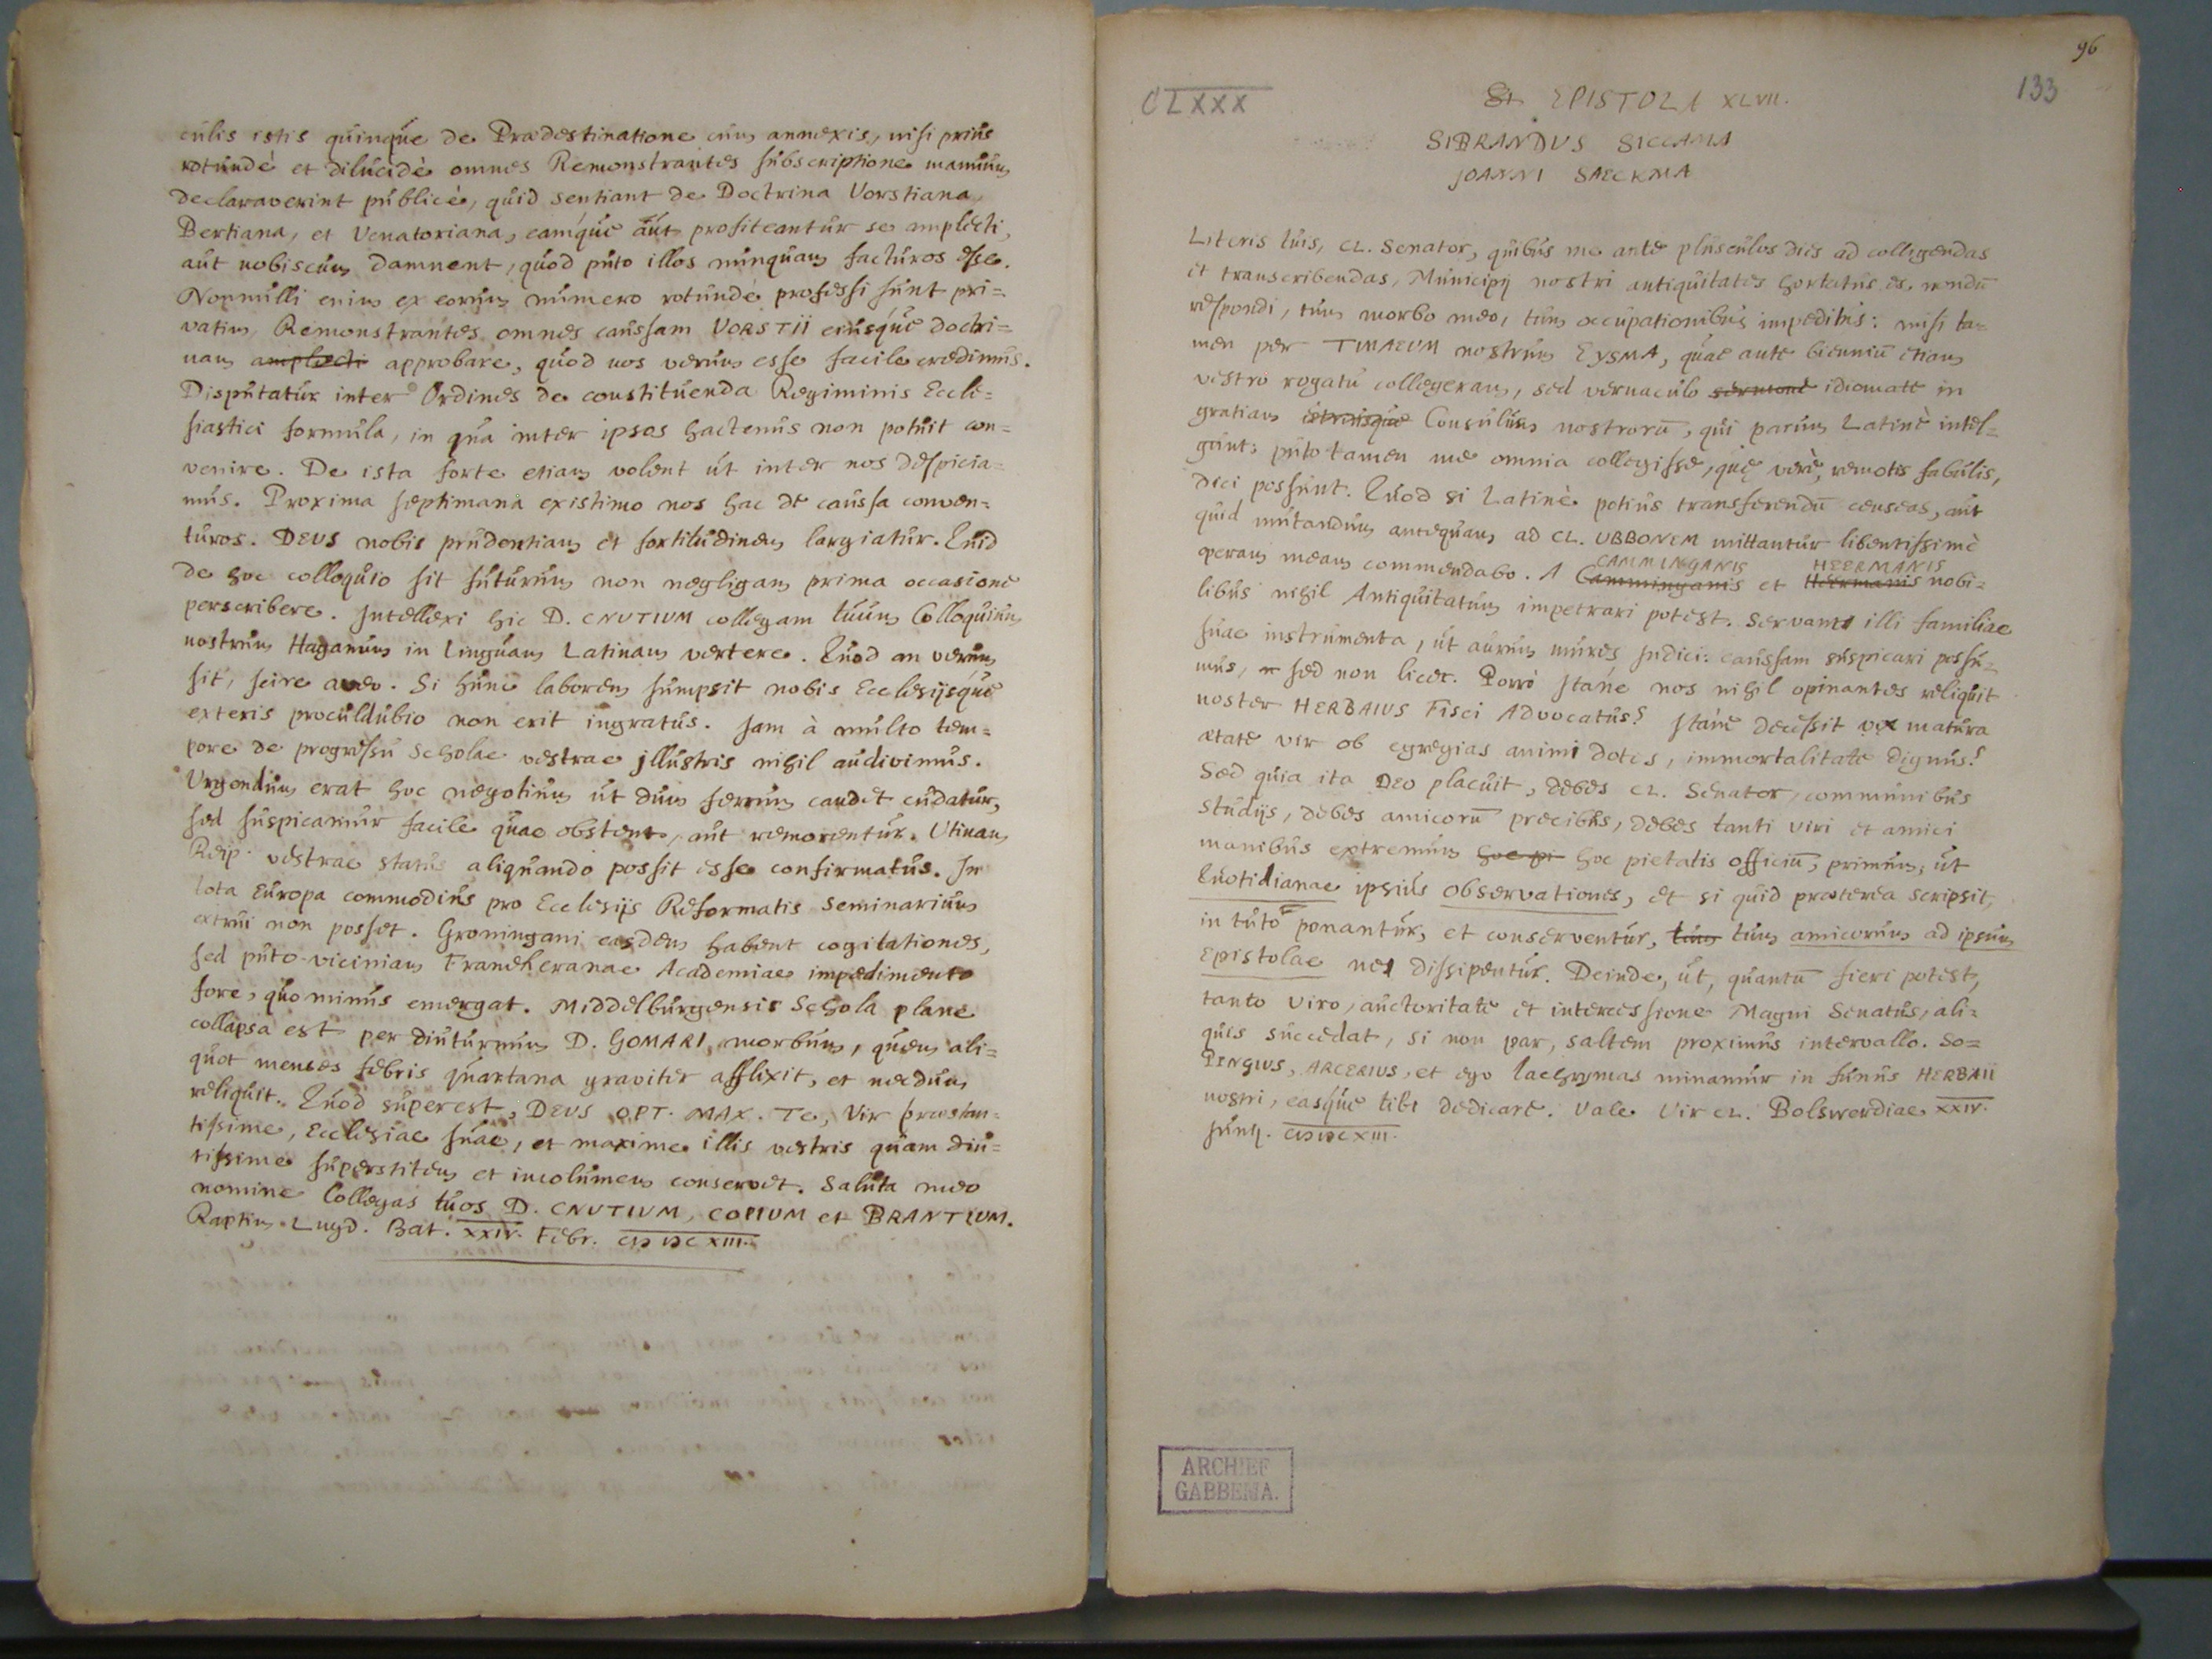 culis istis quinque de Prædestinatione cum annexis, nisi prius
rotundè et dilucidè omnes Remonstrantes subscriptione manuum
declaraverint publicè, quid sentiant de Doctrina Vorstiana,
Bertiana, et Venatoriana, eamque aut profiteantur se amplecti,
aut nobiscum damnent, quod puto illos nunquam facturos esse.
Nonnulli enim ex eorum numero rotundè professi sunt pri=
vatim, Remonstrantes omnes caussam VORSTII eiusque doctri=
nam amplecti approbare, quod nos verum esse facile credimus.
Disputatur inter Ordines de constituenda Regiminis Eccle=
siastici formula, in qua inter ipsos hactenus non potuit con=
venire. De ista forte etiam volent ut inter nos despicia=
mus. Proxima septimana existimo nos hac de caussa conven=
turos. DEUS nobis prudentiam et fortitudinem largiatur. Quid
de hoc colloquio sit futurum non negligam prima occasione
perscribere. Intellexi hic D. CNUTIUM collegam tuum Colloquium
nostrum Haganum in linguam Latinam vertere. Quod an verum
sit, scire aveo. Si hunc laborem sumpsit nobis Ecclesijsque
exteris proculdubio non erit ingratus. Jam à multo tem=
pore de progressu Scholae vestrae jllustris nihil audivimus.
Urgendum erat hoc negotium ut dum ferrum candet cudatur,
sed suspicamur facile quae obstent, aut remorentur. Utinam
Reip. vestrae status aliquando possit esse confirmatus. In
tota Europa commodius pro Ecclesijs Reformatis Seminarium
extrui non posset. Groningani easdem habent cogitationes,
sed puto viciniam Franekeranae Academiae impedimento
fore, quo minus emergat. Middelburgensis Schola plane
collapsa est per diuturnum D. GOMARI, morbum, quem ali=
quot menses febris quartana graviter afflixit, et necdum
reliquit. Quod superest, DEUS OPT. MAX. Te, Vir præstan=
tissime, Ecclesiae suae, et maxime illis vestris quam diu=
tissime superstitem et incolumem conservet. Saluta meo
nomine Collegas tuos D. CNUTIUM, COPIUM et BRANTIUM.
Raptim. Lugd. Bat. XXIV. Febr. CIƆ IƆC XIII.
96
133
CLXXX
EPISTOLA XLVII.
SIBRANDUS SICCAMA
JOANNI SAECKMA
Literis tuis, CL. Senator, quibus me ante plusculos dies ad colligendas
et transcribendas, Municipij nostri antiquitates hortatus es. nondū
respondi, tum morbo meo, tum occupationibus impeditus: misi ta=
men per TIMAEUM nostrum EYSMA, quae ante bienniū etiam
vestro rogatu collegeram, sed vernaculo sermone idiomate in
gratiam Consulum nostrorū, qui parum Latinè intel=
gunt: puto tamen me omnia collegisse, quę verè, remotis fabulis,
dici possunt. Quod si Latinè potius transferendū censeas, aut
quid mutandum antequam ad CL. UBBONEM mittantur libentissimè
operam meam commendabo. A Camminganis CAMMINGANIS et Heermanis HEERMANIS nobi=
libus nihil Antiquitatum impetrari potest. Servant illi familiae
suae instrumenta, ut aurum mures Indici: caussam suspicari possu=
mus, sed non licet. Porrò Itane nos nihil opinantes reliquit
noster HERBAIUS Fisci Advocatus? Itane decessit vix matura
ætate vir ob egregias animi dotes, immortalitate dignus?
Sed quia ita DEO placuit, debes CL. Senator, communibus
studijs, debes amicorū precibus, debes tanti viri et amici
manibus extremum hoc pi hoc pietatis officiū, primum, ut
Quotidianae ipsius observationes, et si quid præterea scripsit,
in tuto ponantur, et conserventur, tum tum amicorum ad ipsum
Epistolae ne dissipentur. Deinde, ut, quantū fieri potest,
tanto viro, auctoritate et intercessione Magni Senatus, ali=
quis succedat, si non par, saltem proximus intervallo. So=
PINGIUS, ARCERIUS, et ego lachrymas minamur in funus HERBAII
nostri, easque tibi dedicare. Vale Vir CL. Bolswerdiae XXIV.
Junij. CIƆ IƆC XIII.
ARCHIEF
GABBEMA.